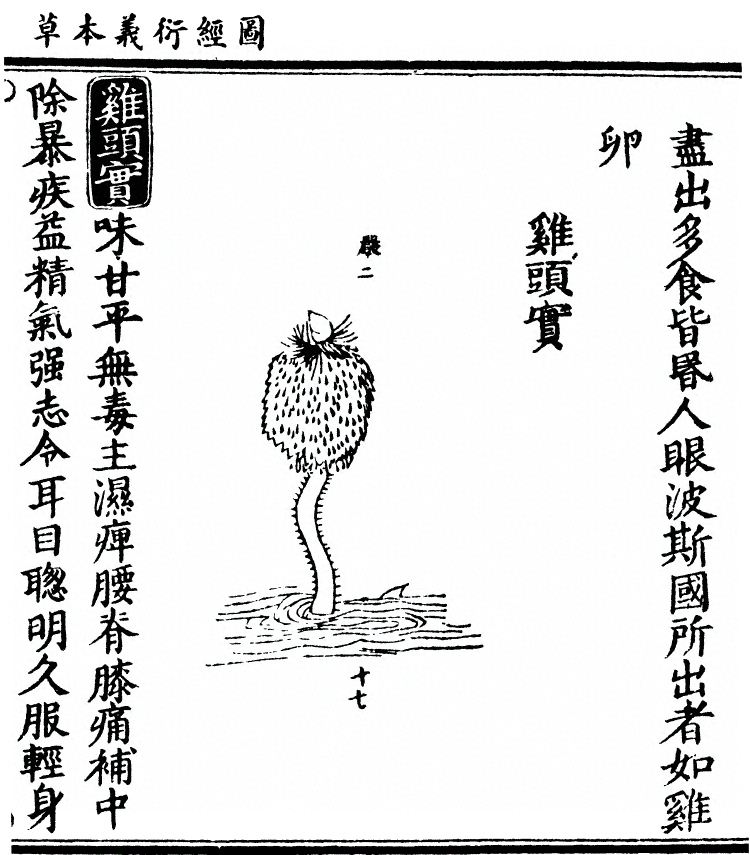 圖經衍義本草
盡出多食皆昬人眼波斯國所出者如雞
卵
雞頭實
二
十七
雞頭實味甘平無毒主濕痺腰脊膝痛補中
除暴疾益精氣强志令耳目聦明久服輕身